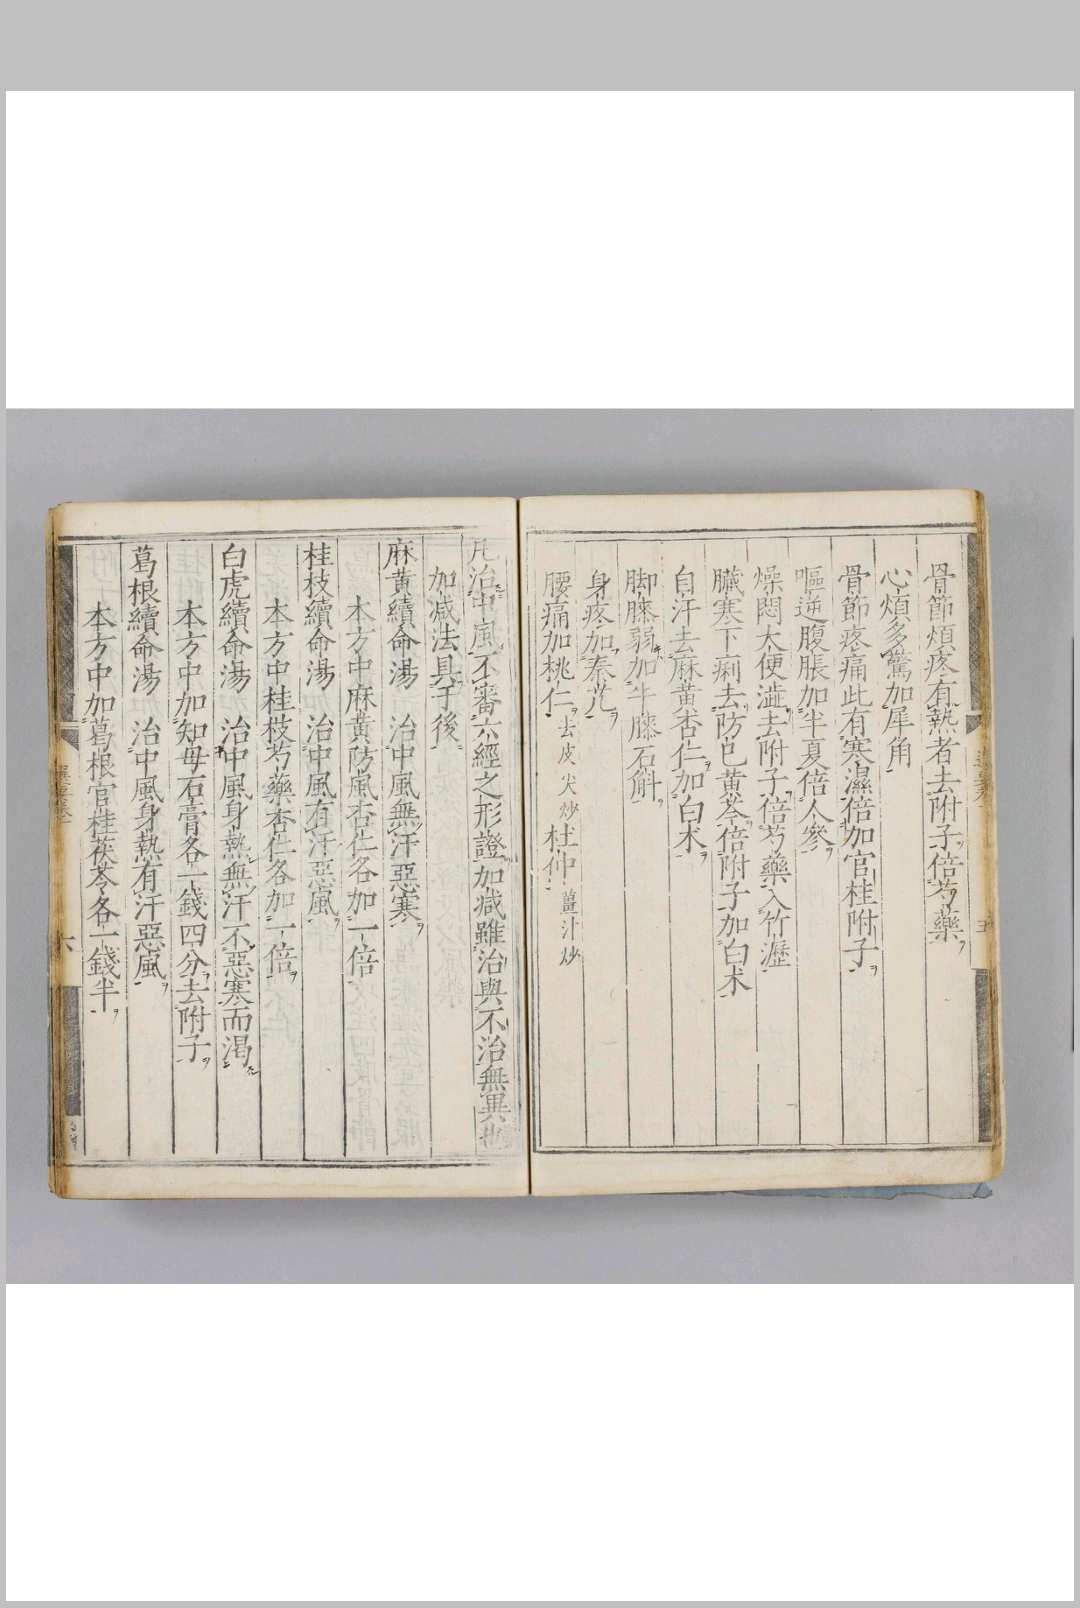 骨節煩疼有熱者去附子倍芍藥
心煩多驚加犀角
骨節疼痛此有寒濕倍加官桂附子
嘔逆腹脹加半夏倍人參
燥悶大便澁去附子倍芍藥入竹瀝
臟寒下痢去防已黃芩倍附子加白朮
自汗去麻黃杏仁加白朮
脚膝弱加牛膝石斛
身疼加秦艽
腰痛加桃仁去皮尖炒杜仲薑汁炒
五
凡治中風不審六經之形證加减雖治與不治無異也
加减法具于後
麻黃續命湯 治中風無汗惡寒
本方中麻黃防風杏仁各加一倍
桂枝續命湯 治中風有汗惡風
本方中桂枝芍藥杏仁各加一倍
白虎續命湯 治中風身熱無汗不惡寒而渴
本方中加知母石膏各一錢四分去附子
葛根續命湯 治中風身熱有汗惡風
本方中加葛根官桂茯苓各一錢半
六